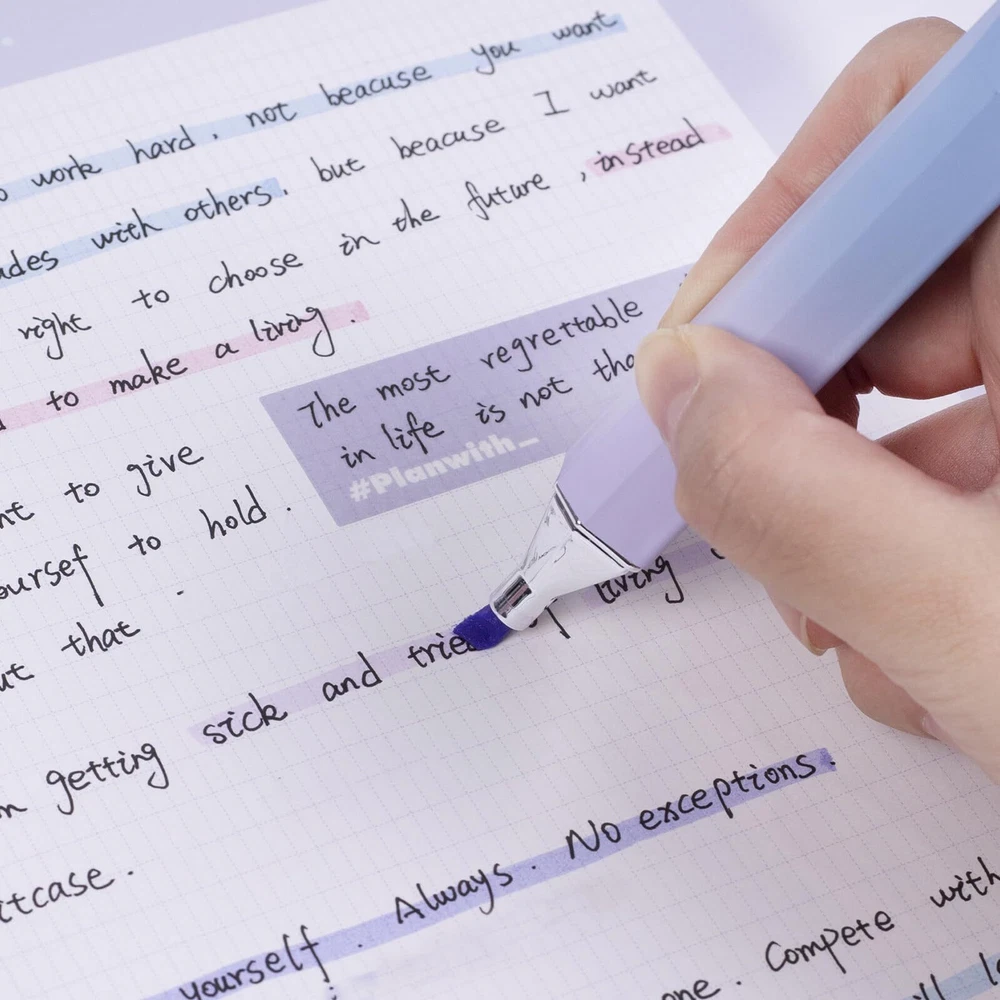 work hard, not beacuse you want
with others, but beacuse I want
right to choose in the future, instead
to make a living.
The most regrettable
in life is not
#Planwith_
to give
to hold.
that
getting sick and living
Always. No exceptions.
yourself.
Compete with